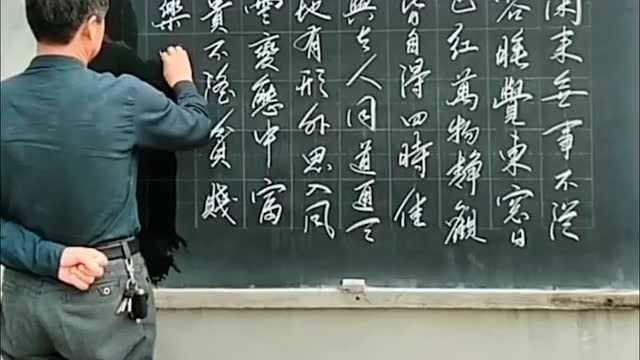 閑來無事不從
容睡覺東窓日
已紅萬物靜觀
皆自得四時佳
興与人同道通天
地有形外思入风
雲變態中富
貴不淫貧賤
樂